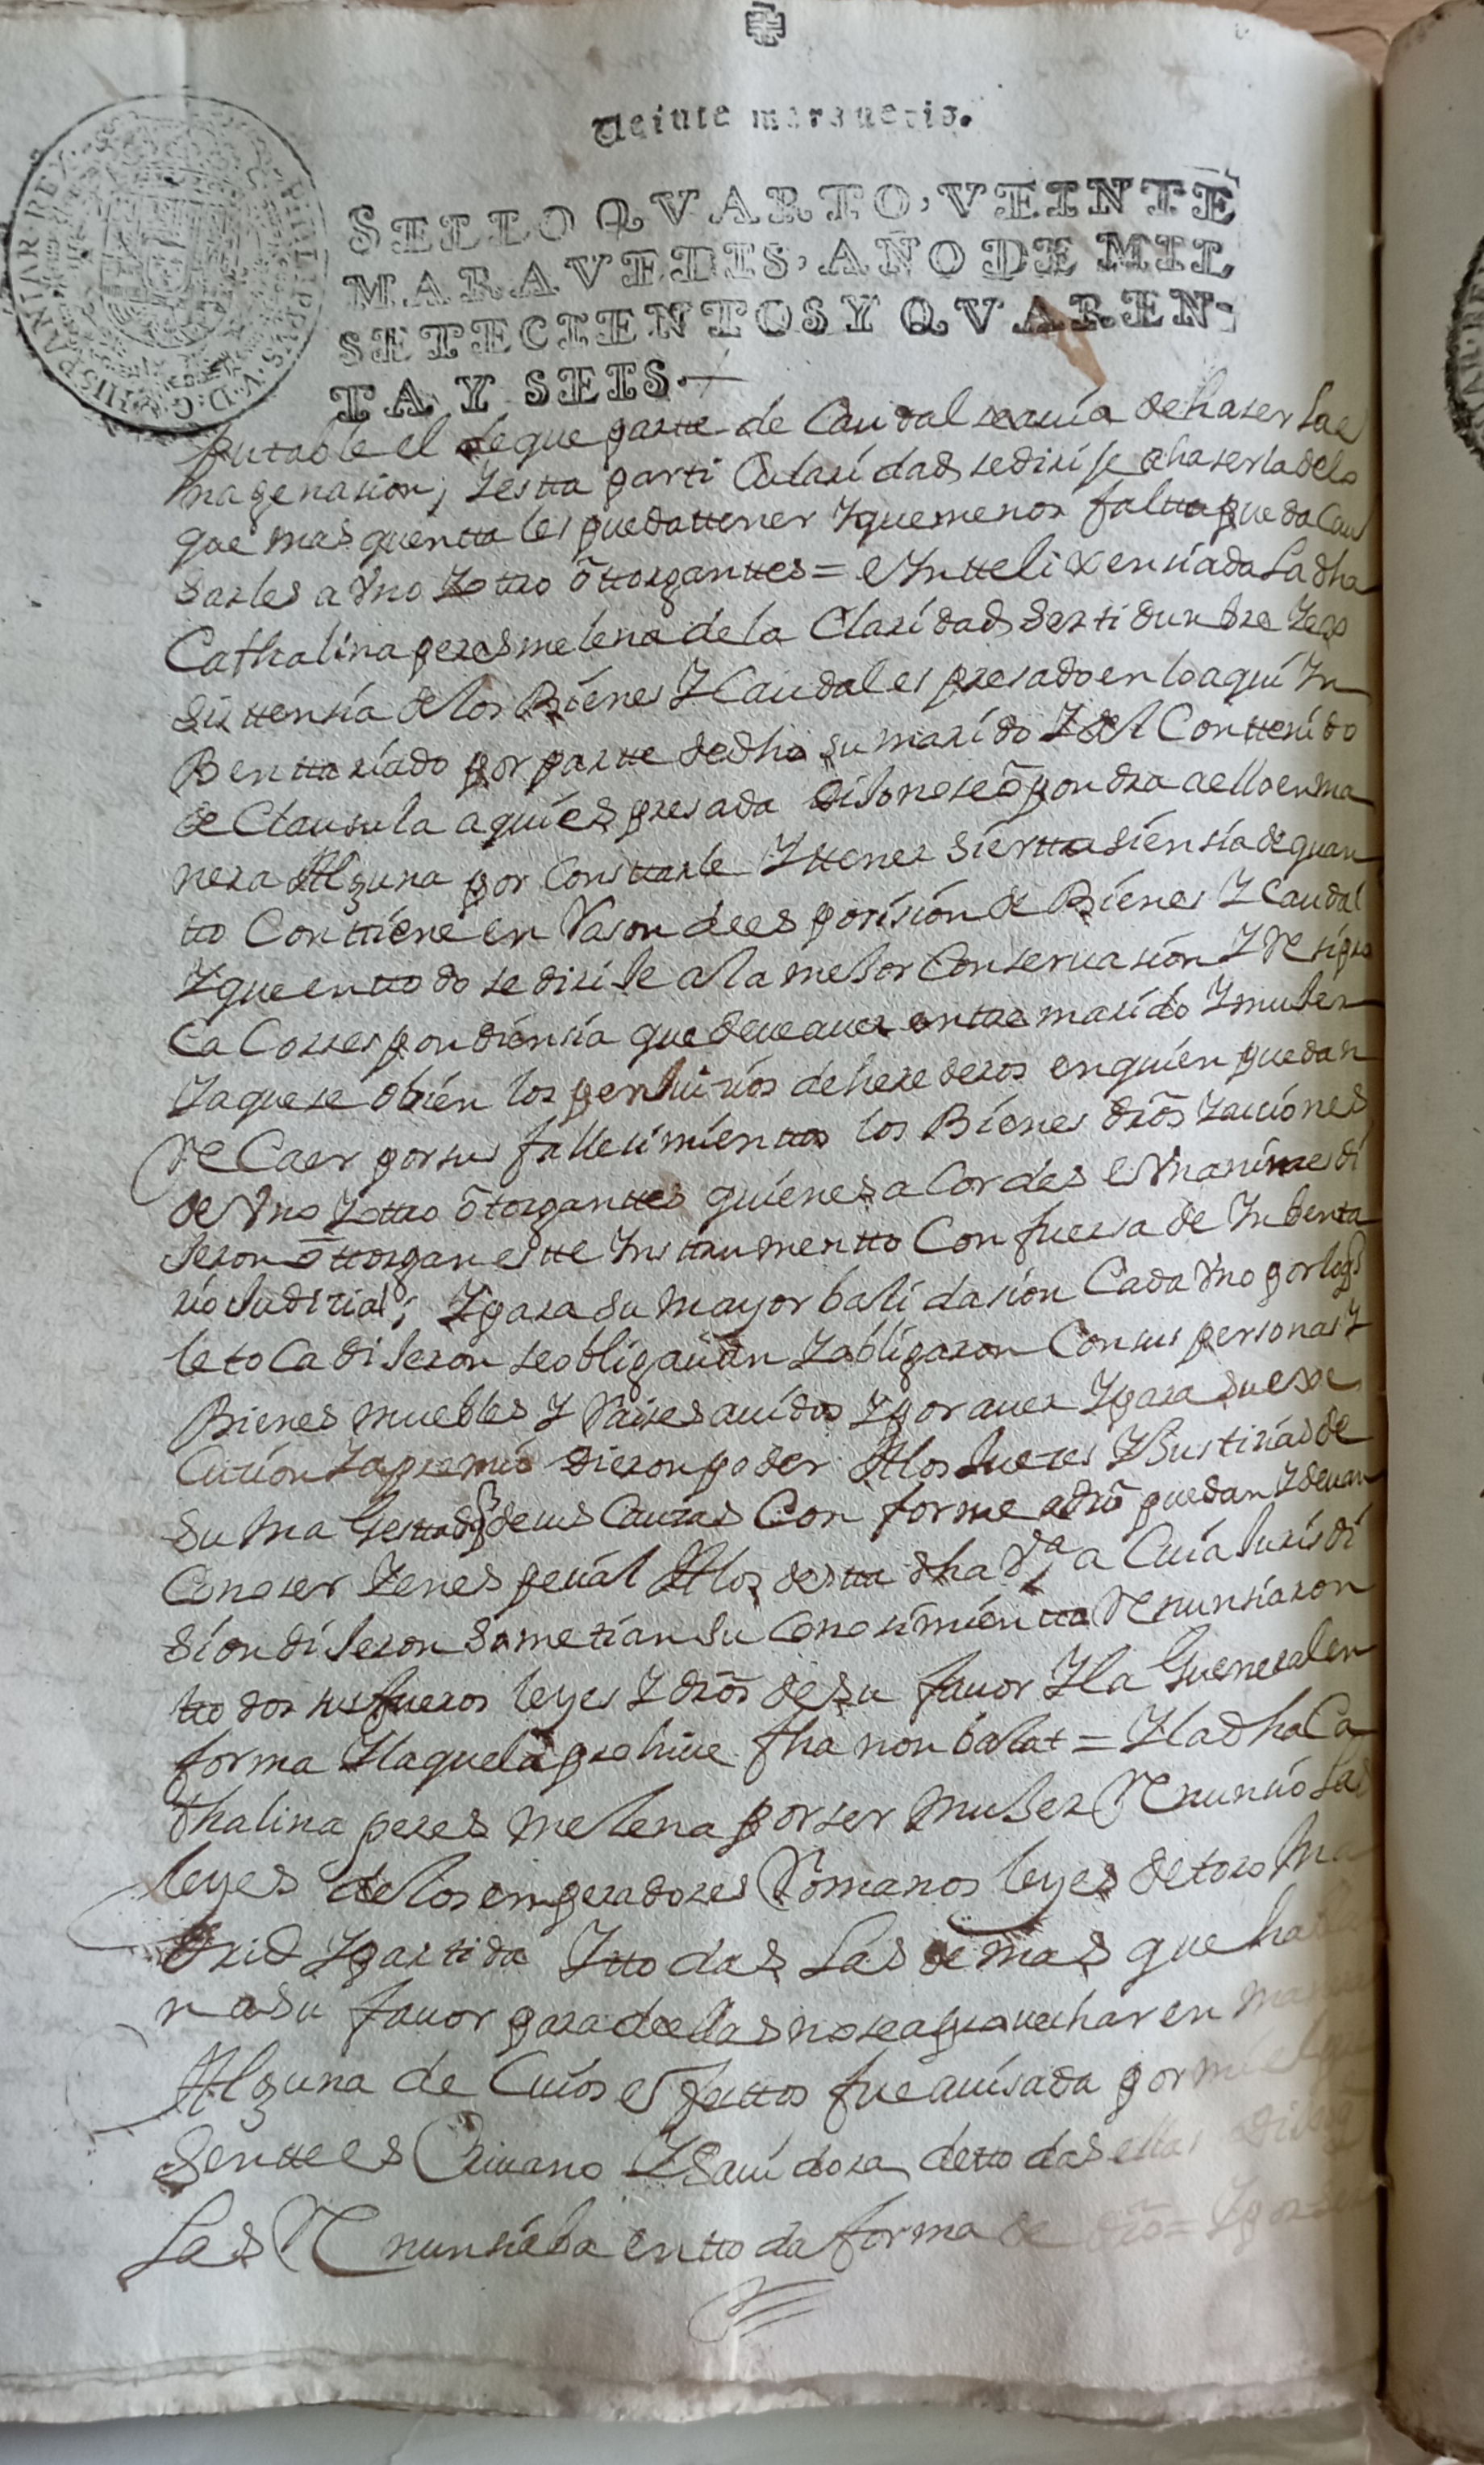 Veinte marauedis.
SELLO QVARTO, VEINTE
MARAVEDIS, AÑO DE MIL
SETECIENTOS Y QVAREN-
TA Y SEIS.
PHILIPPVS. V. D. G. HISPANIAR. REX.
putable el de que partte de Caudal se auia de haser la e
nagenasion; Y estta parti Cularidad se dirije a haserla de lo
que mas quentta les pueda ttener Y que menos faltta pueda Cau
sarles a Vno Y ottro õttorganttes = e Yntteli xensiada La dha
Cathalina peres melena de la Claridad Serti dunbre Y ex
sisttensia de los Bienes Y Caudal espresado en lo aqui Yn
Benttariado por partte de dho su marido Y del Conttenido
de Clausula aqui espresada Dijo no se õpondra a ello en ma
nera Alguna por Consttarle Y ttener Sierta siensia de quan
tto Conttiene en Rason de esposision de Bienes Y Caudal
Y que en ttodo se dirije a la mejor Conseruasion Y Resipro
Ca Correspondensia que deue auer entre marido Y mujer
Y a que se obien los perjuisios de herederos en quien puedan
ReCaer por sus fallesimienttos los Bienes drõs Y acsiones
de Vno Y ottro õtorganttes quienes aCordes e Vnanimes di
jeron õttorgan estte Ynsttrumentto Con fuersa de Ynbenta
rio Judizial; Y para su mayor balidasion Cada Vno por lo q̃
le toCa dijeron se obligauan Y obligaron Con sus personas Y
Bienes muebles Y Raises auidos Y por auer Y para su exe
Cusion Y apremio dieron poder A los Jueses Y Justisias de
Su Magesttad q̃ de sus Causas Conforme a drõ puedan Y deuan
Conoser Y en espesial A los de stta dha Vª a Cuia Jurisdi
sion dijeron sometian su Conosimientto Renunsiaron
ttodos sus fueros leyes Y drõs de su fauor Y la Gueneral en
forma Y la que la prohiue fha non balat = Y la dha Ca
thalina peres melena por ser Mujer Renunsio las
leyes de los enperadores Romanos leyes de toro Ma
drid Y partida Y ttodas las demas que
n a su fauor para de ellas no se aprouechar en
Alguna de Cuios efecttos fue auisada por mi el
Senttte esCriuano Y Sauidora de ttodas ellas
Las Renunsiaba en ttoda forma de drõ = Y por